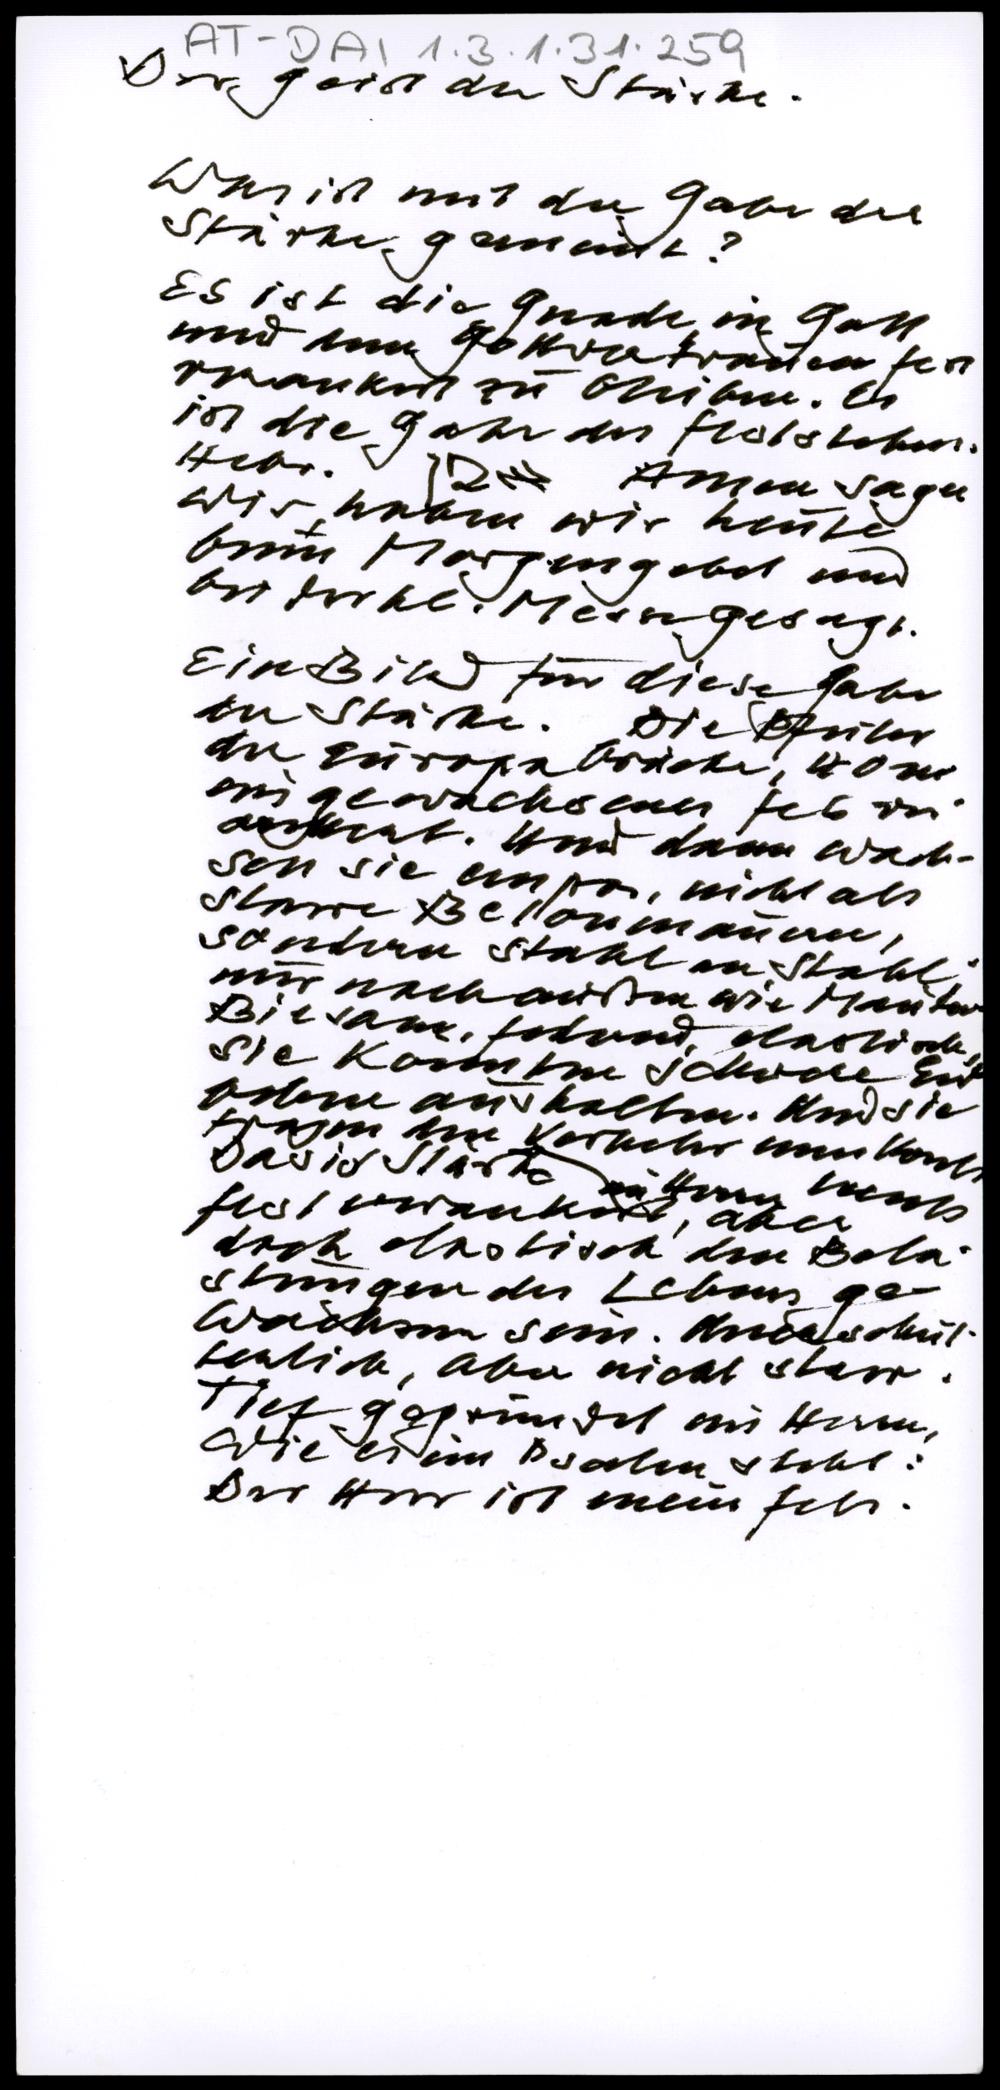 AT-DAI 1.3.1.31.259
Der Geist der Stärke.
Was ist mit der Gabe der
Stärke gemeint?
Es ist die Gnade, in Gott
und dem Gottvertrauen fest
verankert zu bleiben. Es
ist die Gabe des Feststehens.
Hebr. Amen sagen
Wir haben wir heute
beim Morgengebet und
bei der hl. Messe gesagt.
Ein Bild für diese Gabe
der Stärke. Die Pfeiler
der Europabrücke, 40 m
im gewachsenen Fels ver-
ankert. Und dann wach-
sen sie empor, nicht als
starre Betonmauern,
sondern Stahl an Stahl,
nur nach außen wie Mauern
Biegsame, federnd, elastisch,
sie könnten schwere Erd
beben aushalten. Und sie
tragen den Verkehr
Das ist Stärke im Herrn
fest verankert, aber
doch elastisch den Bela-
stungen des Lebens ge-
wachsen sein. Unerschüt-
terlich, aber nicht starr.
Tief gegründet im Herrn,
wie es im Psalm steht:
Der Herr ist mein Fels.